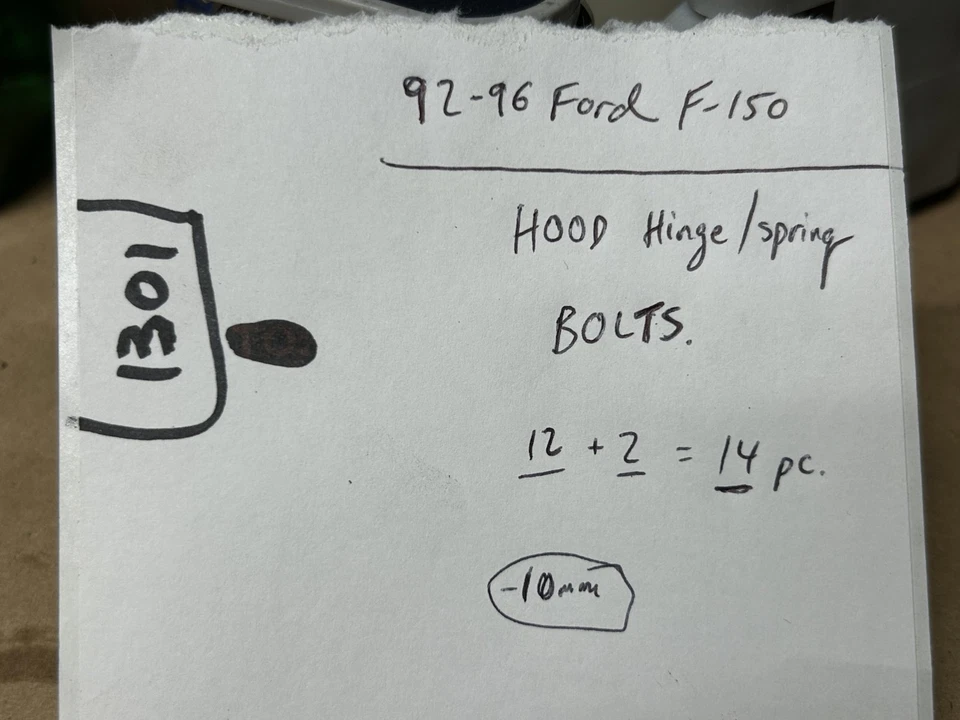 92-96 Ford F-150
HOOD Hinge/spring
BOLTS.
12 + 2 = 14 pc.
-10mm
1301